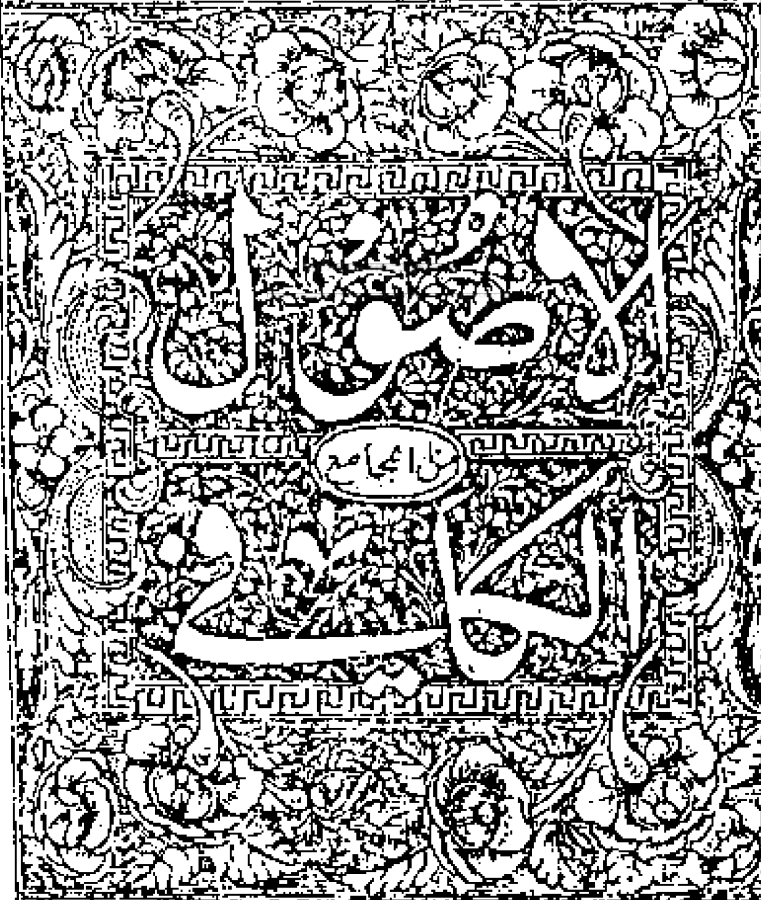 الاصُول
من الجامع
الكافي